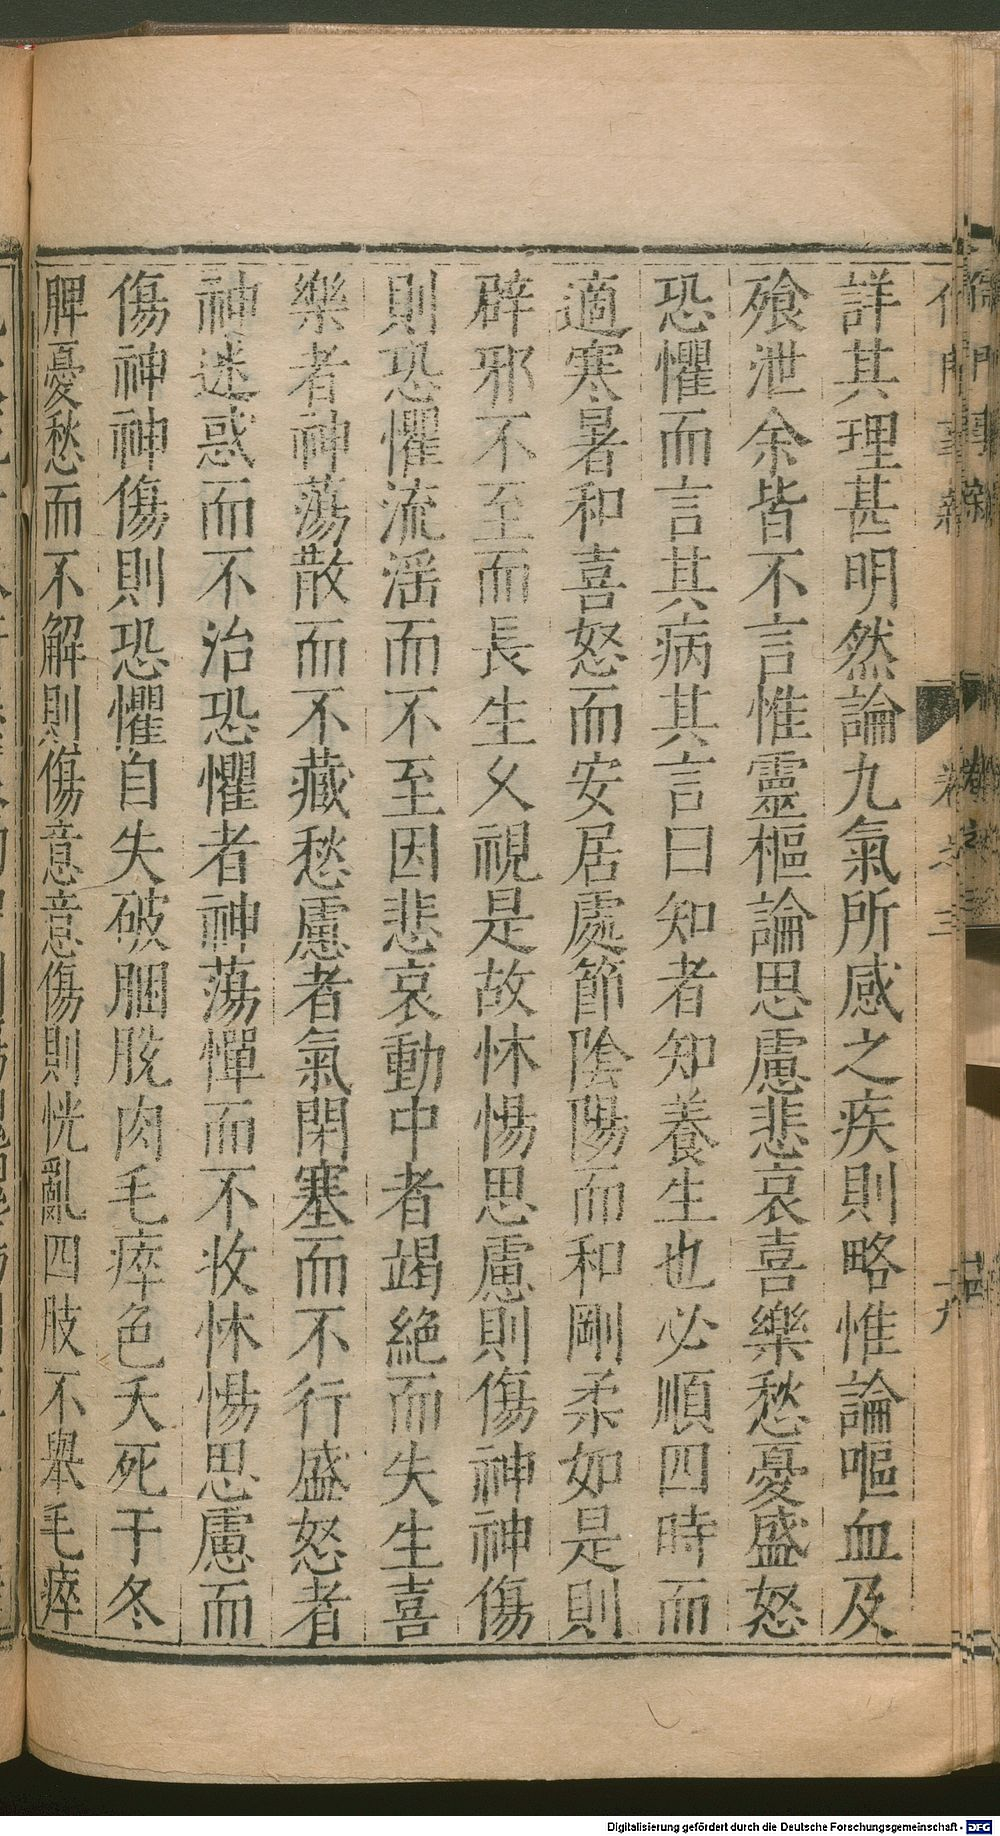 詳其理甚明然論九氣所感之疾則略惟論嘔血及
飱泄余皆不言惟靈樞論思慮悲哀喜樂愁憂盛怒
恐懼而言其病其言曰知者知養生也必順四時而
適寒暑和喜怒而安居處節陰陽而和剛柔如是則
辟邪不至而長生乆視是故怵惕思慮則傷神神傷
則恐懼流淫而不至因悲哀動中者竭絶而失生喜
樂者神蕩散而不藏愁慮者氣閉塞而不行盛怒者
神迷惑而不治恐懼者神蕩憚而不收怵惕思慮而
傷神神傷則恐懼自失破䐃脫肉毛瘁色夭死于冬
脾憂愁而不解則傷意意傷則恍亂四肢不舉毛瘁
Digitalisierung gefördert durch die Deutsche Forschungsgemeinschaft - DFG